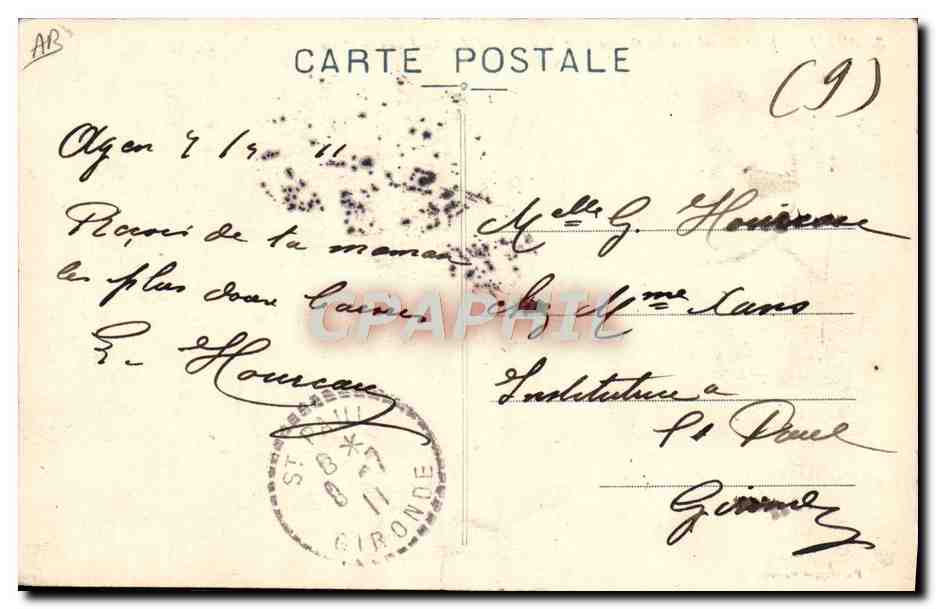 AB
CARTE POSTALE
(9)
Agen 7/9 11
Reçois de ta maman
les plus doux baisers
E. Houreau
Melle G. Houreau
chez Mme Sans
Institutrice à
St Paul
Gironde
CPAPHIL
ST PAUL
8
8 11
GIRONDE